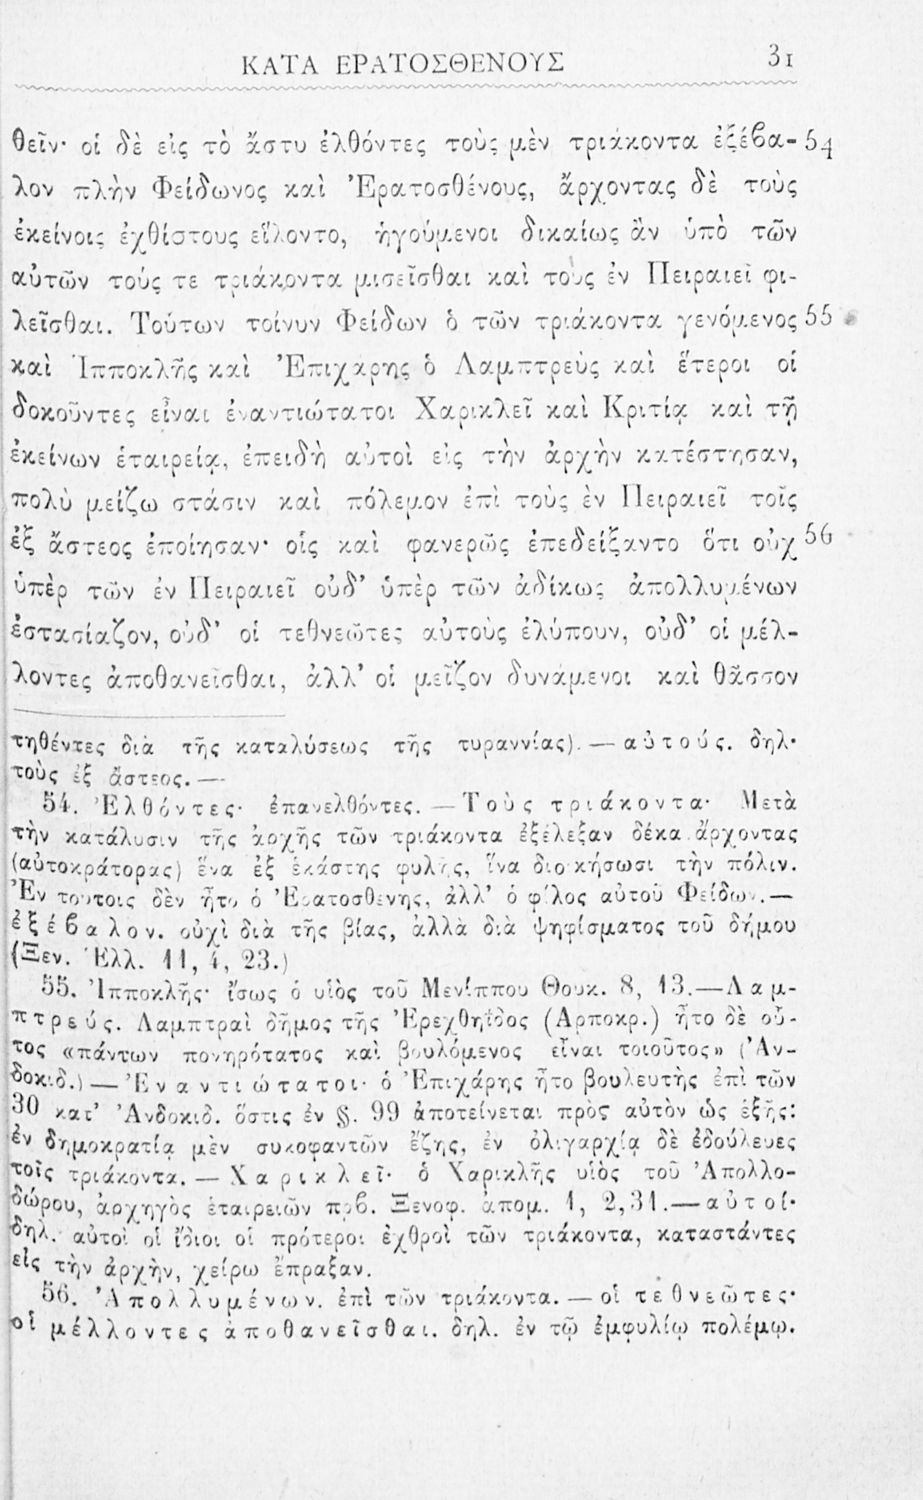 ΚΑΤΑ ΕΡΑΤΟΣΘΕΝΟΥΣ 31
θεῖν· οἱ δὲ εἰς τὸ ἄστυ ἐλθόντες τοὺς μὲν τριάκοντα ἐξέβα- 54
λον πλὴν Φείδωνος καὶ Ἐρατοσθένους, ἄρχοντας δὲ τοὺς
ἐκείνοις ἐχθίστους εἵλοντο, ἡγούμενοι δικαίως ἂν ὑπὸ τῶν
αὐτῶν τούς τε τριάκοντα μισεῖσθαι καὶ τοὺς ἐν Πειραιεῖ φι-
λεῖσθαι. Τούτων τοίνυν Φείδων ὁ τῶν τριάκοντα γενόμενος 55
καὶ Ἱπποκλῆς καὶ Ἐπιχάρης ὁ Λαμπτρεὺς καὶ ἕτεροι οἱ
δοκοῦντες εἶναι ἐναντιώτατοι Χαρικλεῖ καὶ Κριτίᾳ καὶ τῇ
ἐκείνων ἑταιρείᾳ, ἐπειδὴ αὐτοὶ εἰς τὴν ἀρχὴν κατέστησαν,
πολὺ μείζω στάσιν καὶ πόλεμον ἐπὶ τοὺς ἐν Πειραιεῖ τοῖς
ἐξ ἄστεος ἐποίησαν· οἷς καὶ φανερῶς ἐπεδείξαντο ὅτι οὐχ 56
ὑπὲρ τῶν ἐν Πειραιεῖ οὐδ' ὑπὲρ τῶν ἀδίκως ἀπολλυμένων
ἐστασίαζον, οὐδ' οἱ τεθνεῶτες αὐτοὺς ἐλύπουν, οὐδ' οἱ μέλ-
λοντες ἀποθανεῖσθαι, ἀλλ' οἱ μεῖζον δυνάμενοι καὶ θᾶσσον
τηθέντες διὰ τῆς καταλύσεως τῆς τυραννίας). — αὐτούς. δηλ·
τοὺς ἐξ ἄστεος. —
54. Ἐλθόντες· ἐπανελθόντες. — Τοὺς τριάκοντα· Μετὰ
τὴν κατάλυσιν τῆς ἀρχῆς τῶν τριάκοντα ἐξέλεξαν δέκα ἄρχοντας
(αὐτοκράτορας) ἕνα ἐξ ἑκάστης φυλῆς, ἵνα διοικήσωσι τὴν πόλιν.
Ἐν τούτοις δὲν ἦτο ὁ Ἐρατοσθένης, ἀλλ' ὁ φίλος αὐτοῦ Φείδων. —
ἐξέβαλον. οὐχὶ διὰ τῆς βίας, ἀλλὰ διὰ ψηφίσματος τοῦ δήμου
(Ξεν. Ἑλλ. 11, 4, 23.)
55. Ἱπποκλῆς· ἴσως ὁ υἱὸς τοῦ Μενίππου Θουκ. 8, 13.—Λαμ-
πτρεύς. Λαμπτραὶ δῆμος τῆς Ἐρεχθηΐδος (Αρποκρ.) ἦτο δὲ οὗ-
τος «πάντων πονηρότατος καὶ βουλόμενος εἶναι τοιοῦτος» (Ἀν-
δοκιδ.) — Ἐναντιώτατοι· ὁ Ἐπιχάρης ἦτο βουλευτὴς ἐπὶ τῶν
30 κατ' Ἀνδοκιδ. ὅστις ἐν §. 99 ἀποτείνεται πρὸς αὐτὸν ὡς ἑξῆς:
ἐν δημοκρατίᾳ μὲν συκοφαντῶν ἔζης, ἐν ὀλιγαρχίᾳ δὲ ἐδούλευες
τοῖς τριάκοντα. — Χαρικλεῖ· ὁ Χαρικλῆς υἱὸς τοῦ Ἀπολλο-
δώρου, ἀρχηγὸς ἑταιρειῶν πρβ. Ξενοφ. ἀπομ. 1, 2,31.— αὐτοί·
δηλ. αὐτοὶ οἱ ἴδιοι οἱ πρότεροι ἐχθροὶ τῶν τριάκοντα, καταστάντες
εἰς τὴν ἀρχὴν, χείρω ἔπραξαν.
56. Ἀπολλυμένων. ἐπὶ τῶν τριάκοντα. — οἱ τεθνεῶτες·
οἱ μέλλοντες ἀποθανεῖσθαι. δηλ. ἐν τῷ ἐμφυλίῳ πολέμῳ.